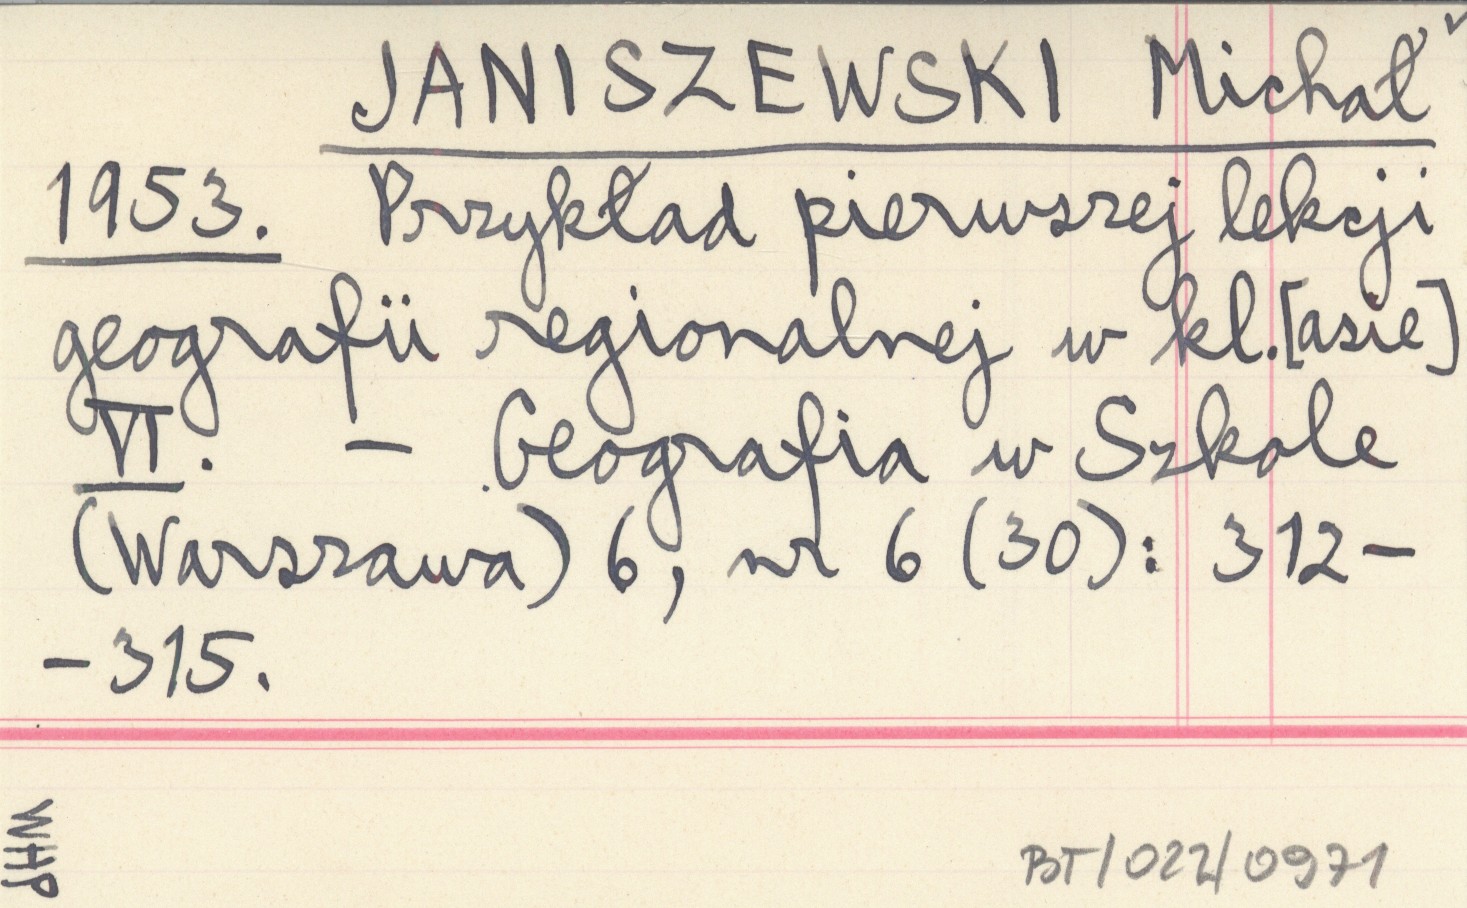 JANISZEWSKI Michał
1953. Przykład pierwszej lekcji
geografii regionalnej w kl.[asie]
VI. — Geografia w Szkole
(Warszawa) 6, nr 6 (30): 312–
–315.
WHP
BT/022/0971